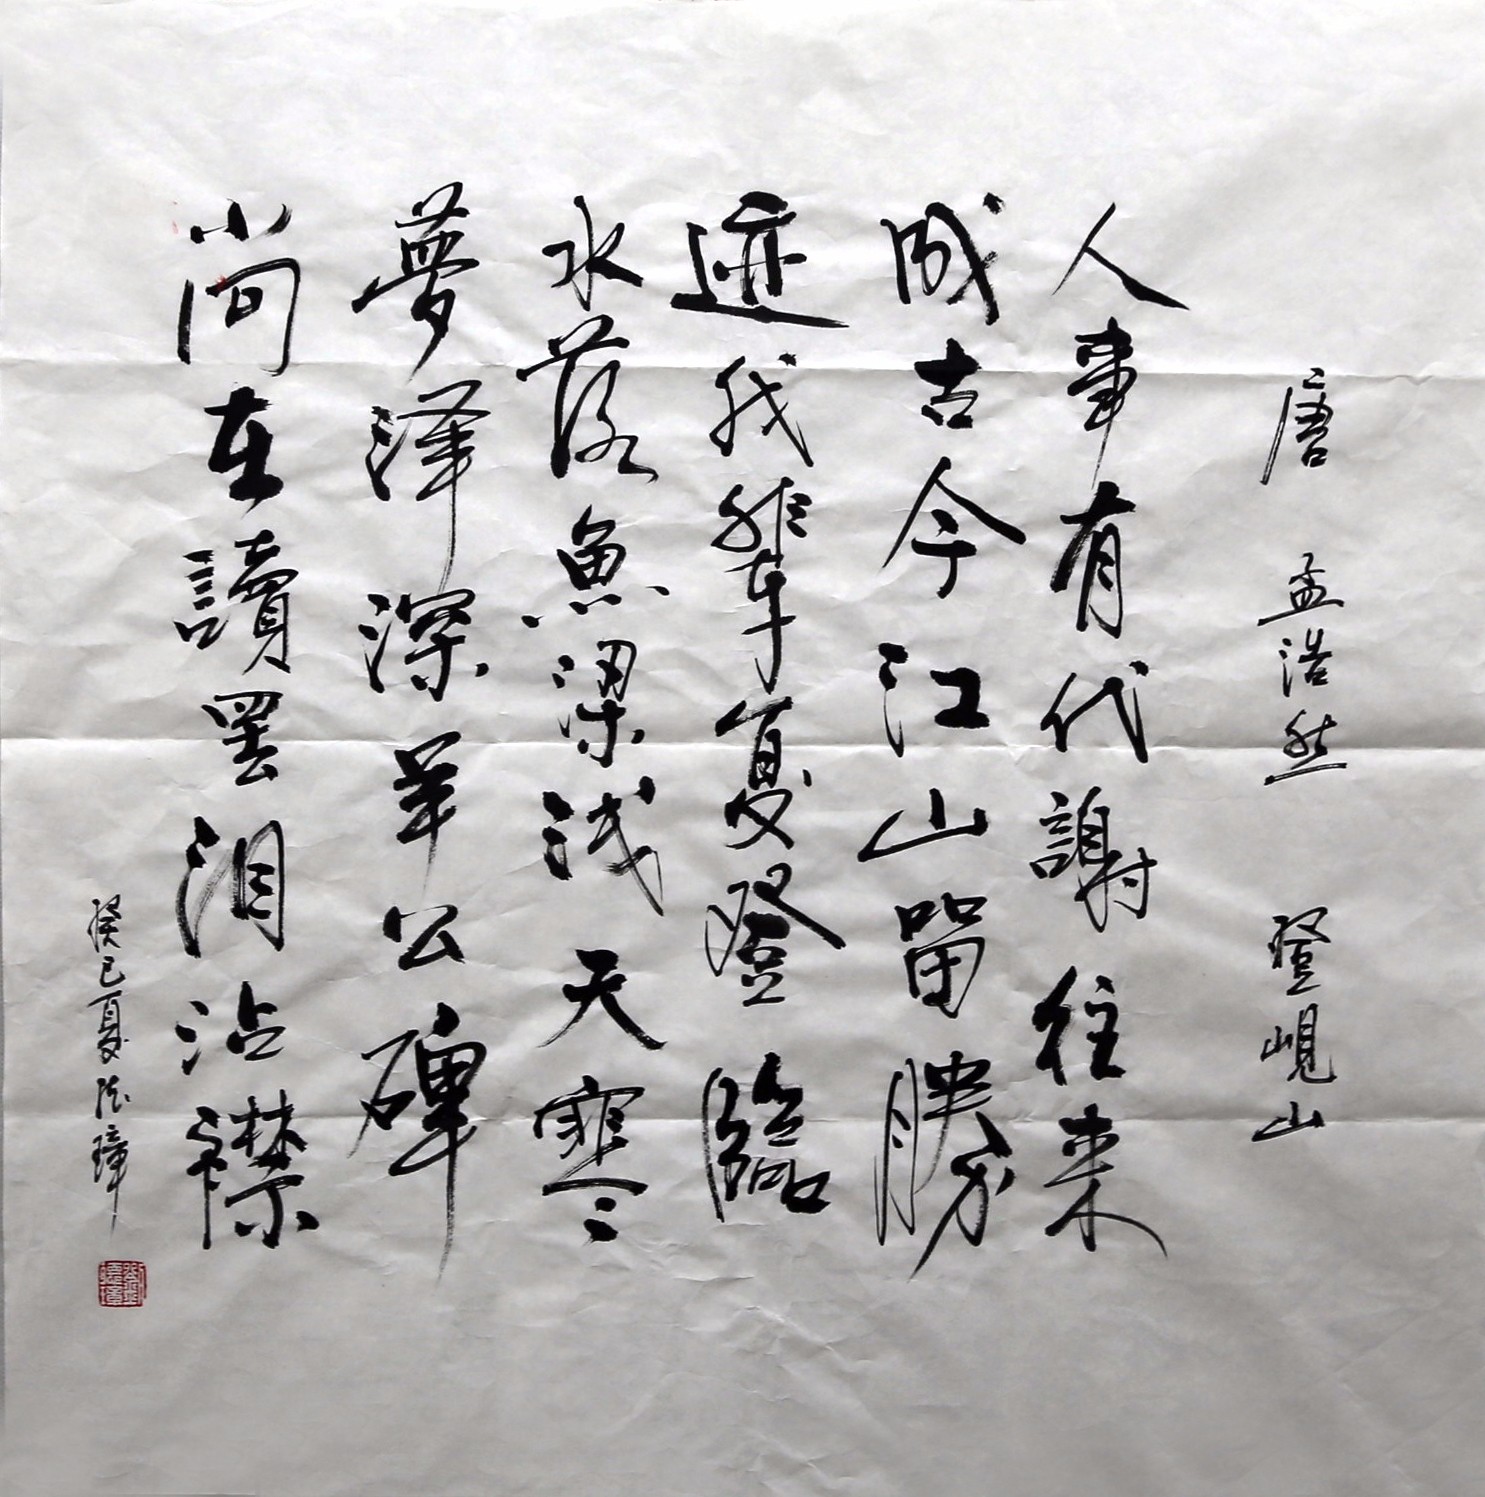 唐 孟浩然 登峴山
人事有代謝往来
成古今江山留勝
迹我輩复登臨
水落魚梁浅天寒
夢泽深羊公碑
尚在讀罢泪沾襟
癸巳夏 璋